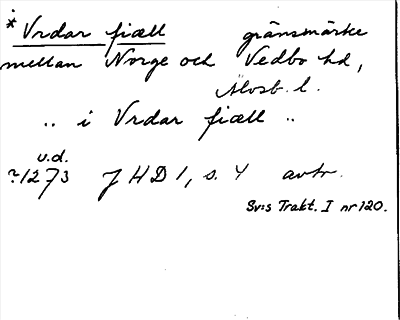 * Vrdar fiæll gränsmärke
mellan Norge och Vedbo hd,
Älvsb. l.
.. i Vrdar fiæll ..
u.d.
?1273 JHD 1, s. 4 avtr.
Sv:s Trakt. I nr 120.